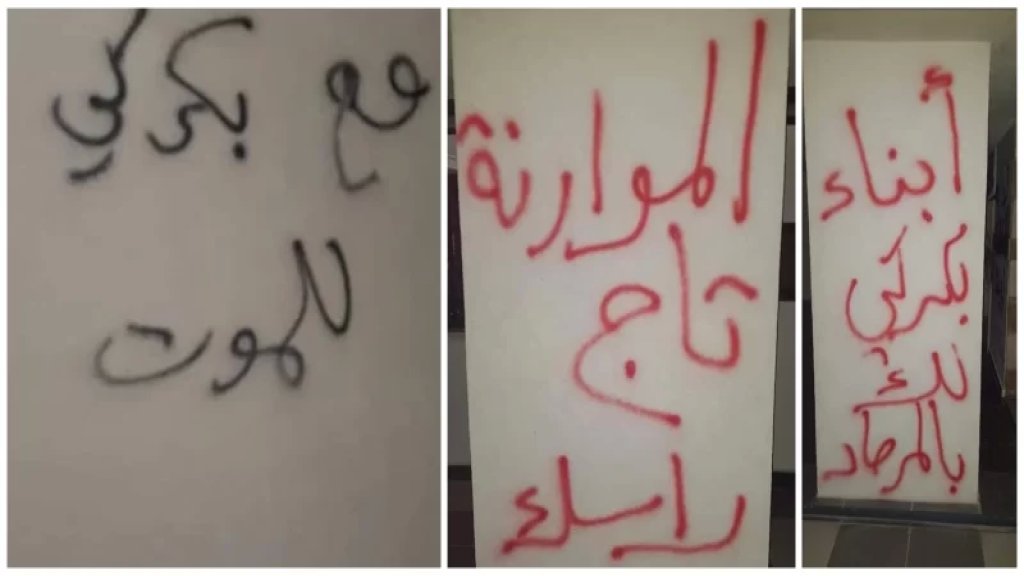 أبناء
بكركي
لك
بالمرصاد
الموارنة
تاج
راسك
مع بكركي
للموت